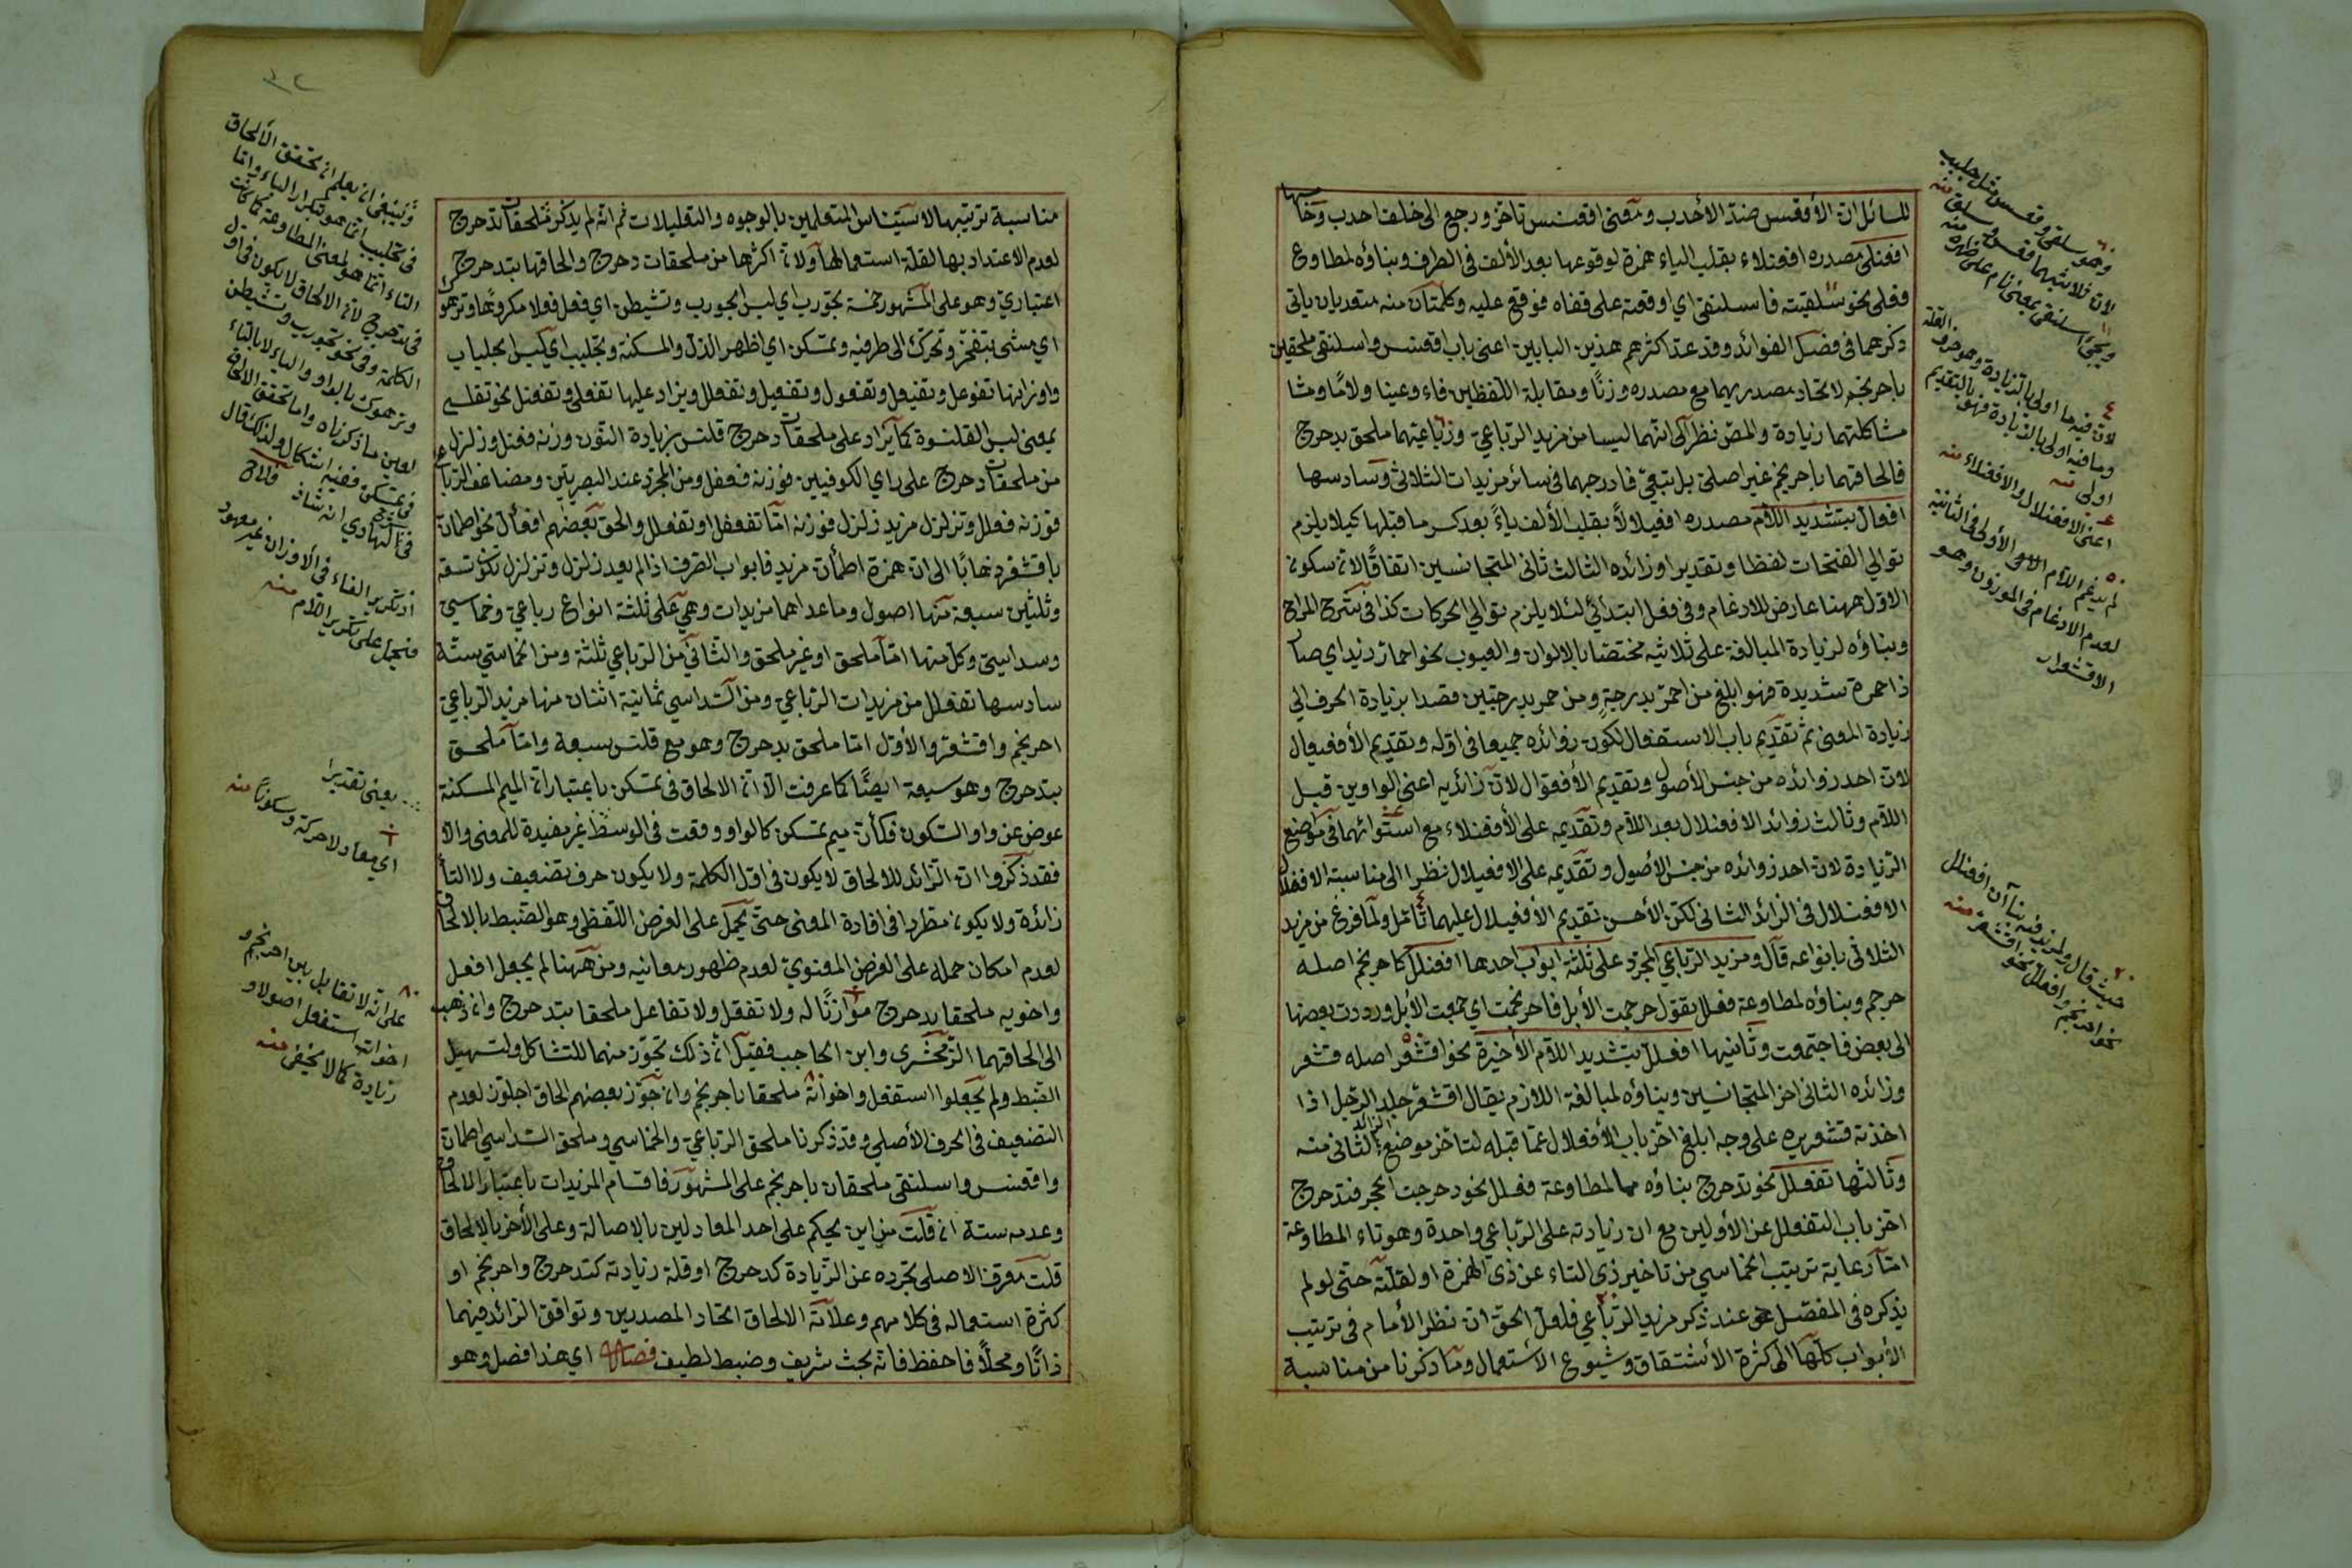 للسائل ان الأقعس ضد الأحدب ومعنى اقعنسس تأخر ورجع الى خلف احدب وخامسها
افعنلى مصدره افعنلاء بقلب الياء همزة لوقوعها بعد الألف في الطرف وبناؤه لمطاوع
فعلى نحو سلقيته فاسلنقى اي اوقعته على قفاه فوقع عليه وكلمتان منه متعديان يأتي
ذكرهما في فصل الفوائد وقد عدّ اكثرهم هذين البابين اعنى باب اقعنسس واسلنقى ملحقين
باحرنجم لاتحاد مصدريهما مع مصدره وزنًا ومقابلة اللفظين فاء وعينا ولامًا ومشا
مشاكلتهما زيادة والمص نظر الى انهما ليسا من مزيد الرباعي ورباعيهما ملحق بدحرج
فالحاقهما باحرنجم غير اصلي بل تبعي فادرجهما في سائر مزيدات الثلاثي وسادسها
افعالّ بتشديد اللام مصدره افعيلالاً بقلب الألف ياءً بعد كسر ما قبلها كيلا يلزم
توالي الفتحات لفظا وتقديرا وزائده الثالث ثاني المتجانسين اتفاقًا لان سكون
الاول ههنا عارض للادغام وفي فعل ابتدائي لئلا يلزم توالي الحركات كذا في شرح المراح
وبناؤه لزيادة المبالغة على ثلاثيه مختصا بالالوان والعيوب نحو احمارّ زيد اي صار
ذا حمرة شديدة فهو ابلغ من احمرّ بدرجةٍ ومن حمر بدرجتين قصدا بزيادة الحرف الى
زيادة المعنى ثم تقديم باب الاستفعال لكون زوائده جميعا في اوله وتقديم الأفعيعال
لان احد زوائده من جنس الأصول وتقديم الأفعوال لان زائديه اعنى الواوين قبل
اللام وثالث زوائد الافعنلال بعد اللام وتقديمه على الأفعنلاء مع استوائهما في موضع
الزيادة لان احد زوائده من جنس الأصول وتقديمه على الافعيلال نظرا الى مناسبته الافعلال
الافعنلال في الزائد الثاني لكن الأحسن تقديم الأفعيلال عليهما تأمل ولما فرغ من مزيد
الثلاثي بانواعه قال ومزيد الرباعي المجرد على ثلثة ابواب احدها افعنلل كاحرنجم اصله
حرجم وبناؤه لمطاوعة فعلل تقول حرجمت الأبل فاحرنجمت اي جمعت الأبل ورددت بعضها
الى بعض فاجتمعت وثانيها افعللّ بتشديد اللام الأخيرة نحو اقشعرّ اصله قشعر
وزائده الثاني اخر المتجانسين وبناؤه لمبالغة اللازم يقال اقشعرّ جلد الرجل اذا
اخذته قشعريره على وجه ابلغ اخّر باب الأفعلال عما قبله لتاخر موضع الزائد الثاني منه
وثالثها تفعلل نحو تدحرج بناؤه لمطاوعة فعلل نحو دحرجت الحجر فتدحرج
اخّر باب التفعلل عن الأولين مع ان زيادته على الرباعي واحدة وهو تاء المطاوعة
امّا رعاية ترتيب الخماسي من تاخير ذي التاء عن ذي الهمزة او لقلته حتى لو لم
يذكره في المفصل عند ذكر مزيد الرباعي فلعل الحق ان نظر الأمام في ترتيب
الأبواب كلها الى كثرة الأشتقاق وشيوع الأستعمال وما ذكرنا من مناسبة
وهو سلقى وقعسس مثل جلبب
لان ثلاثيهما قعس وسلق منه
ويجئ اسلنقى بمعنى نام على ظهره منه
لان فيهما اولى بالزيادة وهو حروف العلة
وما فيه اولى بالزيادة فهو بالتقديم
اولى منه
اعنى الافعنلال والافعنلاء منه
لم يدغم اللام الأولى في الثانية
لعدم الادغام في الموزون وهو
الاقشعرار
حيث قال ولمزيد فيه بناآن افعنلل
نحو احرنجم وافعللّ نحو اقشعرّ منه
مناسبة ترتيبها لاستيناس المتعلمين بالوجوه والتعليلات ثم انه لم يذكر ملحقات تدحرج
لعدم الاعتداد بها لقلة استعمالها ولان اكثرها من ملحقات دحرج والحاقها بتدحرج
اعتباري وهو على المشهور خمسة تجورب اي لبس الجورب وتشيطن اي فعل فعلا مكروها وترهوك
اي مشى بتبختر وتحرك الى طرفيه وتمسكن اي اظهر الذل والمسكنة وتجلبب اي لبس الجلباب
واوزانها تفوعل وتفيعل وتفعول وتمفعل وتفعلل ويزاد عليها تفعلى وتفعنل نحو تقلسى
بمعنى لبس القلنسوة كما يزاد على ملحقات دحرج قلنس بزيادة النون وزنه فعنل وزلزل
من ملحقات دحرج على راي الكوفيين فوزنه فعفل ومن المجرد عند البصريين ومضاعف الرباعي
فوزنه فعلل وتزلزل مزيد زلزل فوزنه امّا تفعفل او تفعلل والحق بعضهم افعألّ نحو اطمأنّ
باقشعرّ ذهابًا الى ان همزة اطمأنّ مزيد فابواب الصرف اذا لم يعد زلزل وتزلزل تكون تسعة
وثلثين سبعة منها اصول وما عداها مزيدات وهي على ثلثة انواع رباعي وخماسي
وسداسي وكل منها امّا ملحق او غير ملحق والثاني من الرباعي ثلثة ومن الخماسي ستة
سادسها تفعلل من مزيدات الرباعي ومن السداسي ثمانية اثنان منها مزيد الرباعي
احرنجم واقشعرّ والأول امّا ملحق بدحرج وهو مع قلنس سبعة وامّا ملحق
بتدحرج وهو سبعة ايضًا كما عرفت الّا ان الالحاق في تمسكن باعتبار ان الميم المسكنة
عوض عن واو السكون فكأن ميم تمسكن كالواو وقعت في الوسط غير مفيدة للمعنى والا
فقد ذكروا ان الزائد للالحاق لا يكون في اول الكلمة ولا يكون حرف تضعيف ولا التاء
زائدة ولا يكون مطردا في افادة المعنى حتى يحمل على الغرض اللفظى وهو الضبط بالالحاق
لعدم امكان حمله على الغرض المعنوي لعدم ظهور معانيه ومن ههنا لم يجعل افعل
واخويه ملحقا بدحرج موازنًا له ولا تفعّل ولا تفاعل ملحقا بتدحرج وان ذهب
الى الحاقهما الزمخشرى وابن الحاجب فقيل ان ذلك تجوّز منهما للتشاكل ولتسهيل
الضبط ولم يجعلوا استفعل واخواته ملحقا باحرنجم وان جوّز بعضهم الحاق اجلوّذ لعدم
التضعيف في الحرف الأصلي وقد ذكرنا ملحق الرباعي والخماسي وملحق السداسي اطمأنّ
واقعنسس واسلنقى ملحقان باحرنجم على المشهور فاقسام المزيدات باعتبار الالحاق
وعدمه ستة ان قلت من اين يحكم على احد المعادلين بالاصالة وعلى الأخر بالالحاق
قلت معرفة الاصلى بتجرده عن الزيادة كدحرج او قلة زيادته كتدحرج واحرنجم او
كثرة استعماله في كلامهم وعلامة الالحاق اتحاد المصدرين وتوافق الزائد فيهما
ذاتًا ومحلاً فاحفظ فانه بحث شريف وضبط لطيف فصل اي هذا فصل وهو
وينبغى ان يعلم ان تحقق الألحاق
في تجلبب انما هو تكرار الباء واما
التاء انما هو لمعنى المطاوعة كما كانت
في تدحرج لان الالحاق لا يكون في اول
الكلمة وفي نحو تجورب وتشيطن
وترهوك بالواو والياء لا بالتاء
لعين ما ذكرناه واما تحقق الالحاق
في تمسكن ففيه اشكال ولذلك قال
في شرح الهادي انه شاذ
اذ تكرير الفاء في الأوزان غير معهود
فيحمل على تكرير اللام منه
يعنى تقديرا
اي معادلا حركة وسكونًا منه
على انه لا تقابل بين احرنجم و
اخواته استفعل اصولا و
زيادة كما لا يخفى منه